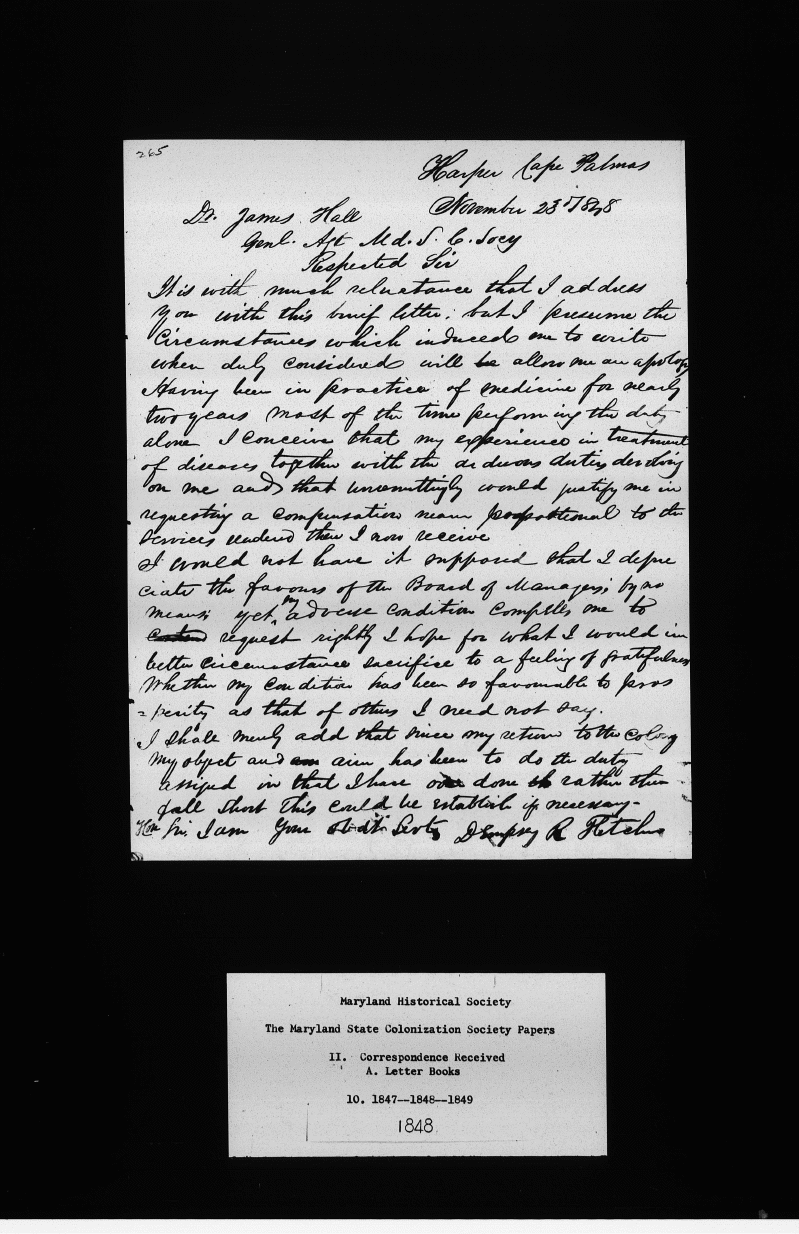 265
Harper Cape Palmas
November 23d 1848
Dr. James Hall
Genl. Agt Md. S. C. Socy
Respected Sir
It is with much reluctance that I address
you with this brief letter; but I presume the
Circumstances which induced me to write
when duly considered will be allow me an apology
Having been in practice of medicine for nearly
two years most of the time performing the duty
alone I conceive that my experience in treatment
of diseases together with the arduous duties devolving
on me and that unremittingly would justify me in
requesting a compensation nearer proportional to the
services rendered then I now receive
I would not have it supposed that I depre
ciate the favours of the Board of Managers; by no
means; yet my adverse condition compells me to
request rightly I hope for what I would in
better circumstance sacrifice to a feeling of gratefulness
Whether my condition has been so favourable to pros
=perity as that of others I need not say.
I shall merely add that since my return to the colony
my object and aim has been to do the duty
assigned in that I have over done rather then
fall short This could be establish if necessary-
Hon Sir, I am Your obdt Servt Dempsey R Fletcher
Maryland Historical Society
The Maryland State Colonization Society Papers
II. Correspondence Received
A. Letter Books
10. 1847--1848--1849
1848